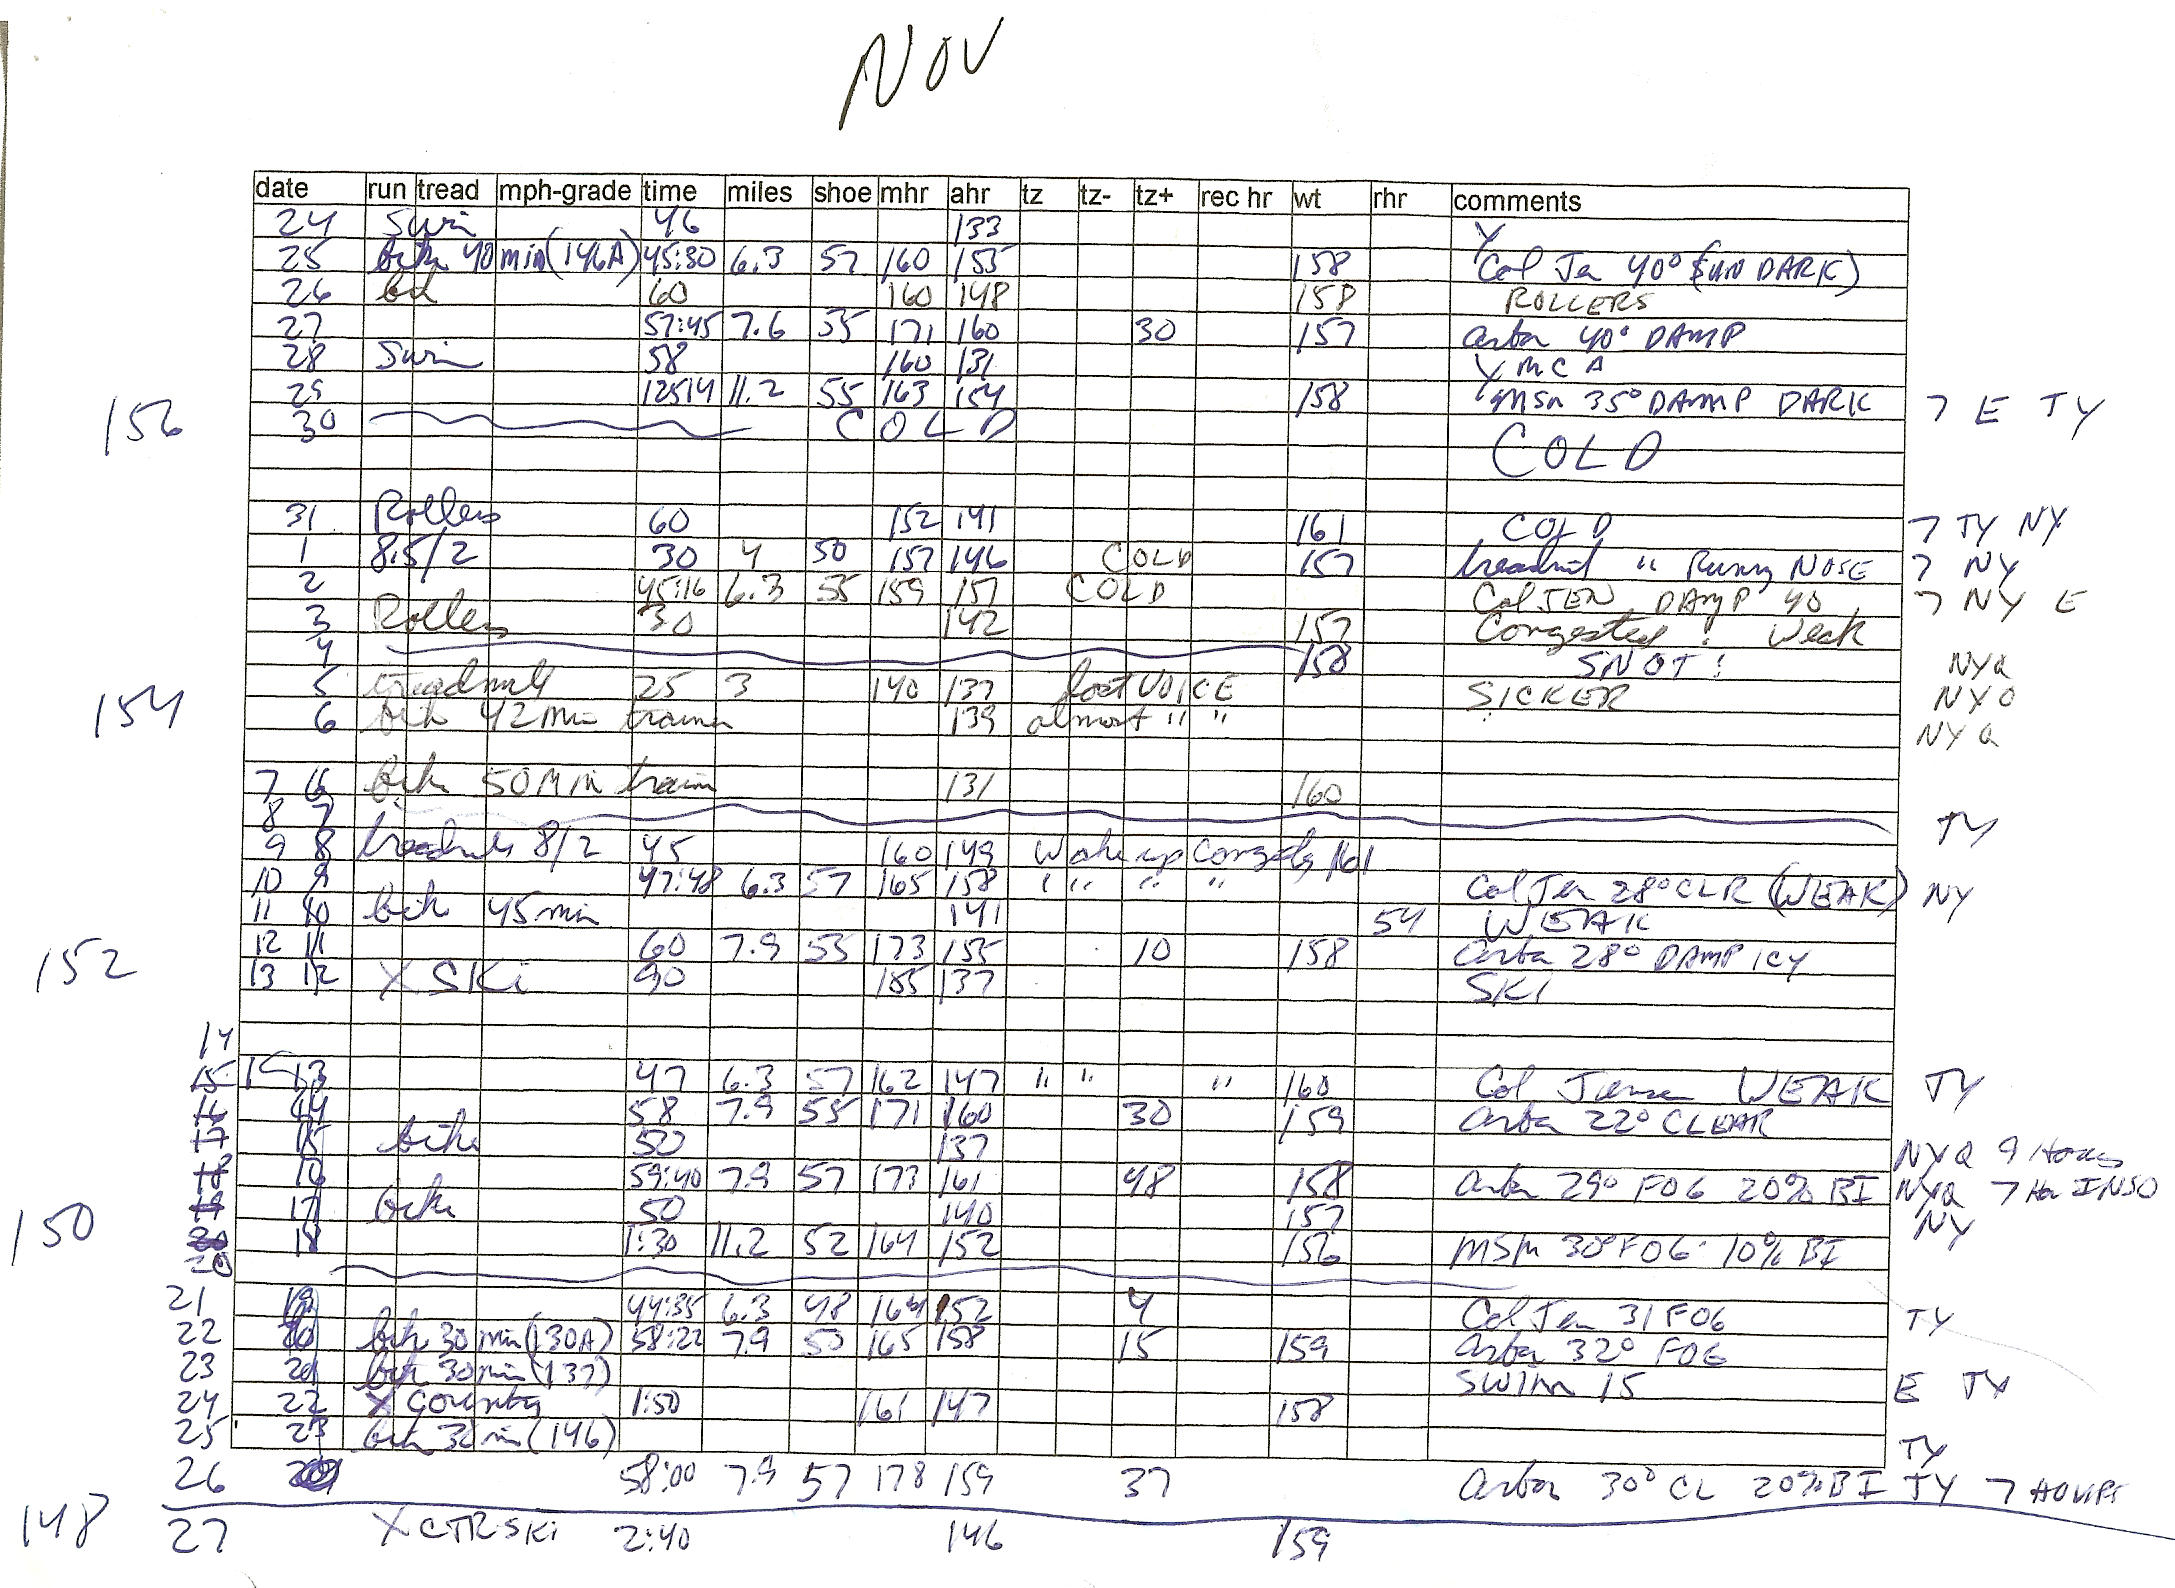 NOV
date run tread mph-grade time miles shoe mhr ahr tz tz- tz+ rec hr wt rhr comments
24 Swim 46 133 Y
25 bike 40 min (146A) 45:30 6.3 57 160 155 158 Col Jen 40° (SUN DARK)
26 bik 60 160 148 158 ROLLERS
27 57:45 7.6 55 171 160 30 157 arbor 40° DAMP
28 Swim 58 160 131 YMCA
29 12514 11.2 55 163 154 158 MSM 35° DAMP DARK 7 E TY
156 30 COLD COLD
31 Rollers 60 152 141 161 COLD 7 TY NY
1 8.5/2 30 4 50 157 146 COLD 157 treadmil " Runny NOSE 7 NY
2 45:16 6.3 55 159 151 COLD Col JEN DAMP 40 7 NY E
3 Rollers 30 142 157 Congested! Weak
4 158 SNOT! NYQ
154 5 treadmill 25 3 140 137 lost VOICE SICKER NYQ
6 bik 42 min trainer 139 almost " " NYQ
7 6 bik 50 MIN train 131 160
8 7 TY
9 8 treadmill 8/2 45 160 149 Wake up 161
10 9 47:48 6.3 57 165 158 " " " " Col Jen 28° CLR (WEAK) NY
11 10 bik 45 min 141 54 WEAK
152 12 11 60 7.9 55 173 155 10 158 arbor 28° DAMP ICY
13 12 X SKi 90 185 137 SKI
14
15 15 13 47 6.3 57 162 147 " " " 160 Col Jensen WEAK TY
16 14 58 7.9 55 171 160 30 159 arbor 22° CLEAR
17 15 bike 50 137 NYQ 9 Hours
18 16 59:40 7.9 57 173 161 48 158 arbor 29° FOG 20% BI NYQ 7 Hr INSO
150 19 17 bike 50 140 157 NY
20 18 1:30 11.2 52 164 152 156 MSM 30° FOG 10% BI
20
21 19 44:35 6.3 48 164 152 4 Col Jen 31 FOG TY
22 20 bik 30 min (130A) 58:22 7.9 50 165 158 15 159 arbor 32° FOG
23 21 bik 30 min (137) SWIM 15 E TY
24 22 X Country 1:50 161 147 158
25 23 bik 30 min (146) TY
26 58:00 7.9 57 178 159 37 arbor 30° CL 20% BI TY 7 HOURS
148 27 X CTR SKi 2:40 146 159